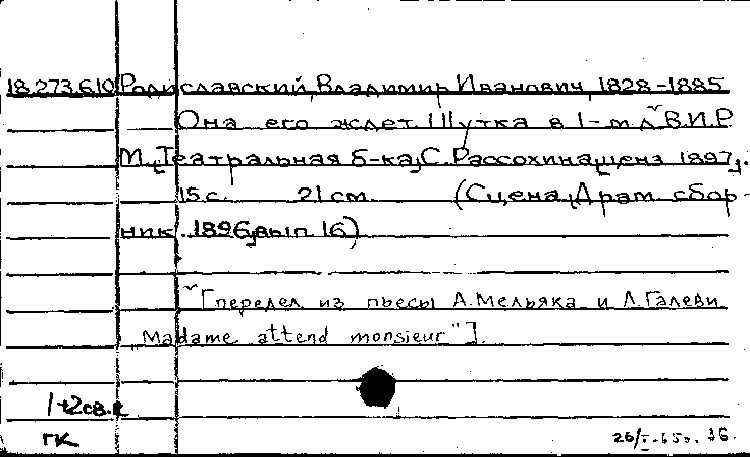 18.273.610 Родиславский, Владимир Иванович, 1828-1885
Она его ждет. Шутка в 1-м д. В.И.Р.
М., Театральная б-ка, С. Рассохина, ценз. 1897.
15 с. 21 см. (Сцена, Драм. сбор-
ник. 1896, вып. 16)
[передел. из пьесы А. Мельяка и Л. Галеви
"Madame attend monsieur"].
1+2св.к
ГК 26/I-65г.